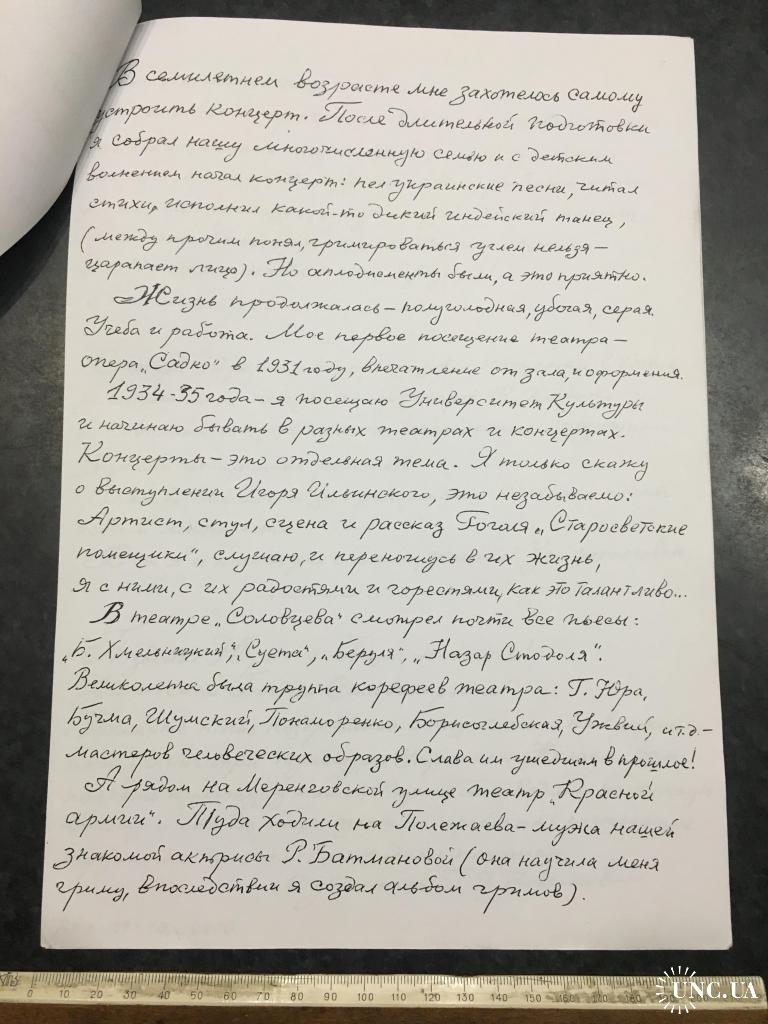 В семилетнем возрасте мне захотелось самому
устроить концерт. После длительной подготовки
я собрал нашу многочисленную семью и с детским
волнением начал концерт: пел украинские песни, читал
стихи, исполнил какой-то дикий индейский танец,
(между прочим понял, гримироваться углем нельзя –
царапает лицо). Но аплодисменты были, а это приятно.
Жизнь продолжалась – полуголодная, убогая, серая.
Учеба и работа. Мое первое посещение театра –
опера „Садко“ в 1931 году, впечатление от зала, и оформления.
1934-35 года – я посещаю Университет Культуры
и начинаю бывать в разных театрах и концертах.
Концерты – это отдельная тема. Я только скажу
о выступлении Игоря Ильинского, это незабываемо:
Артист, стул, сцена и рассказ Гоголя „Старосветские
помещики“, слушаю, и переношусь в их жизнь,
я с ними, с их радостями и горестями, как это талантливо...
В театре „Соловцева“ смотрел почти все пьесы:
„Б. Хмельницкий“, „Суета“, „Беруля“, „Назар Стодоля“.
Великолепна была труппа корефеев театра: Г. Юра,
Бучма, Шумский, Понаморенко, Борисоглебская, Ужвий, и т.д. –
мастеров человеческих образов. Слава им ушедшим в прошлое!
А рядом на Меринговской улице театр „Красной
армии“. Туда ходили на Полежаева – мужа нашей
знакомой актрисы Р. Батмановой (она научила меня
гриму, впоследствии я создал альбом гримов).
0 10 20 30 40 50 60 70 80 90 100 110 120 130 140 150 160 170 180
UNC.UA